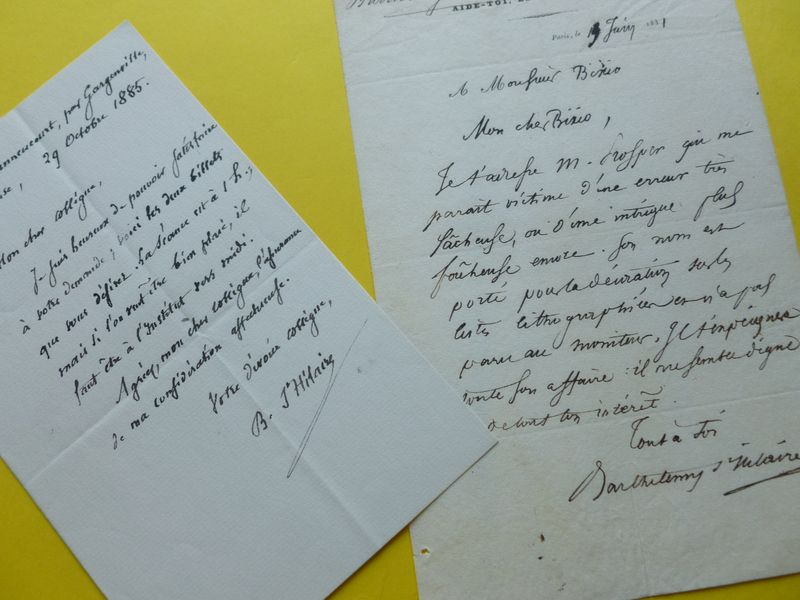 par Gargenville,
29 Octobre 1885.
Mon cher collègue,
Je suis heureux de pouvoir satisfaire
à votre demande; voici les deux billets
que vous désirez. La séance est à 1 h.;
mais si l'on veut être bien placé, il
faut être à l'Institut vers midi.
Agréez, mon cher collègue, l'assurance
de ma considération affectueuse.
Votre dévoué collègue,
B. St Hilaire
AIDE-TOI, 
Paris, le 9 Juin 1831
A Monsieur Bixio
Mon cher Bixio,
Je t'adresse M. Prosper qui me
parait victime d'une erreur très
fâcheuse, ou d'une intrigue plus
fâcheuse encore. Son nom est
porté pour la décoration sur les
listes lithographiées et n'a pas
paru au moniteur. Il t'expliquera
toute son affaire: il me semble digne
de tout ton intérêt.
Tout à toi
Barthelemy St hilaire